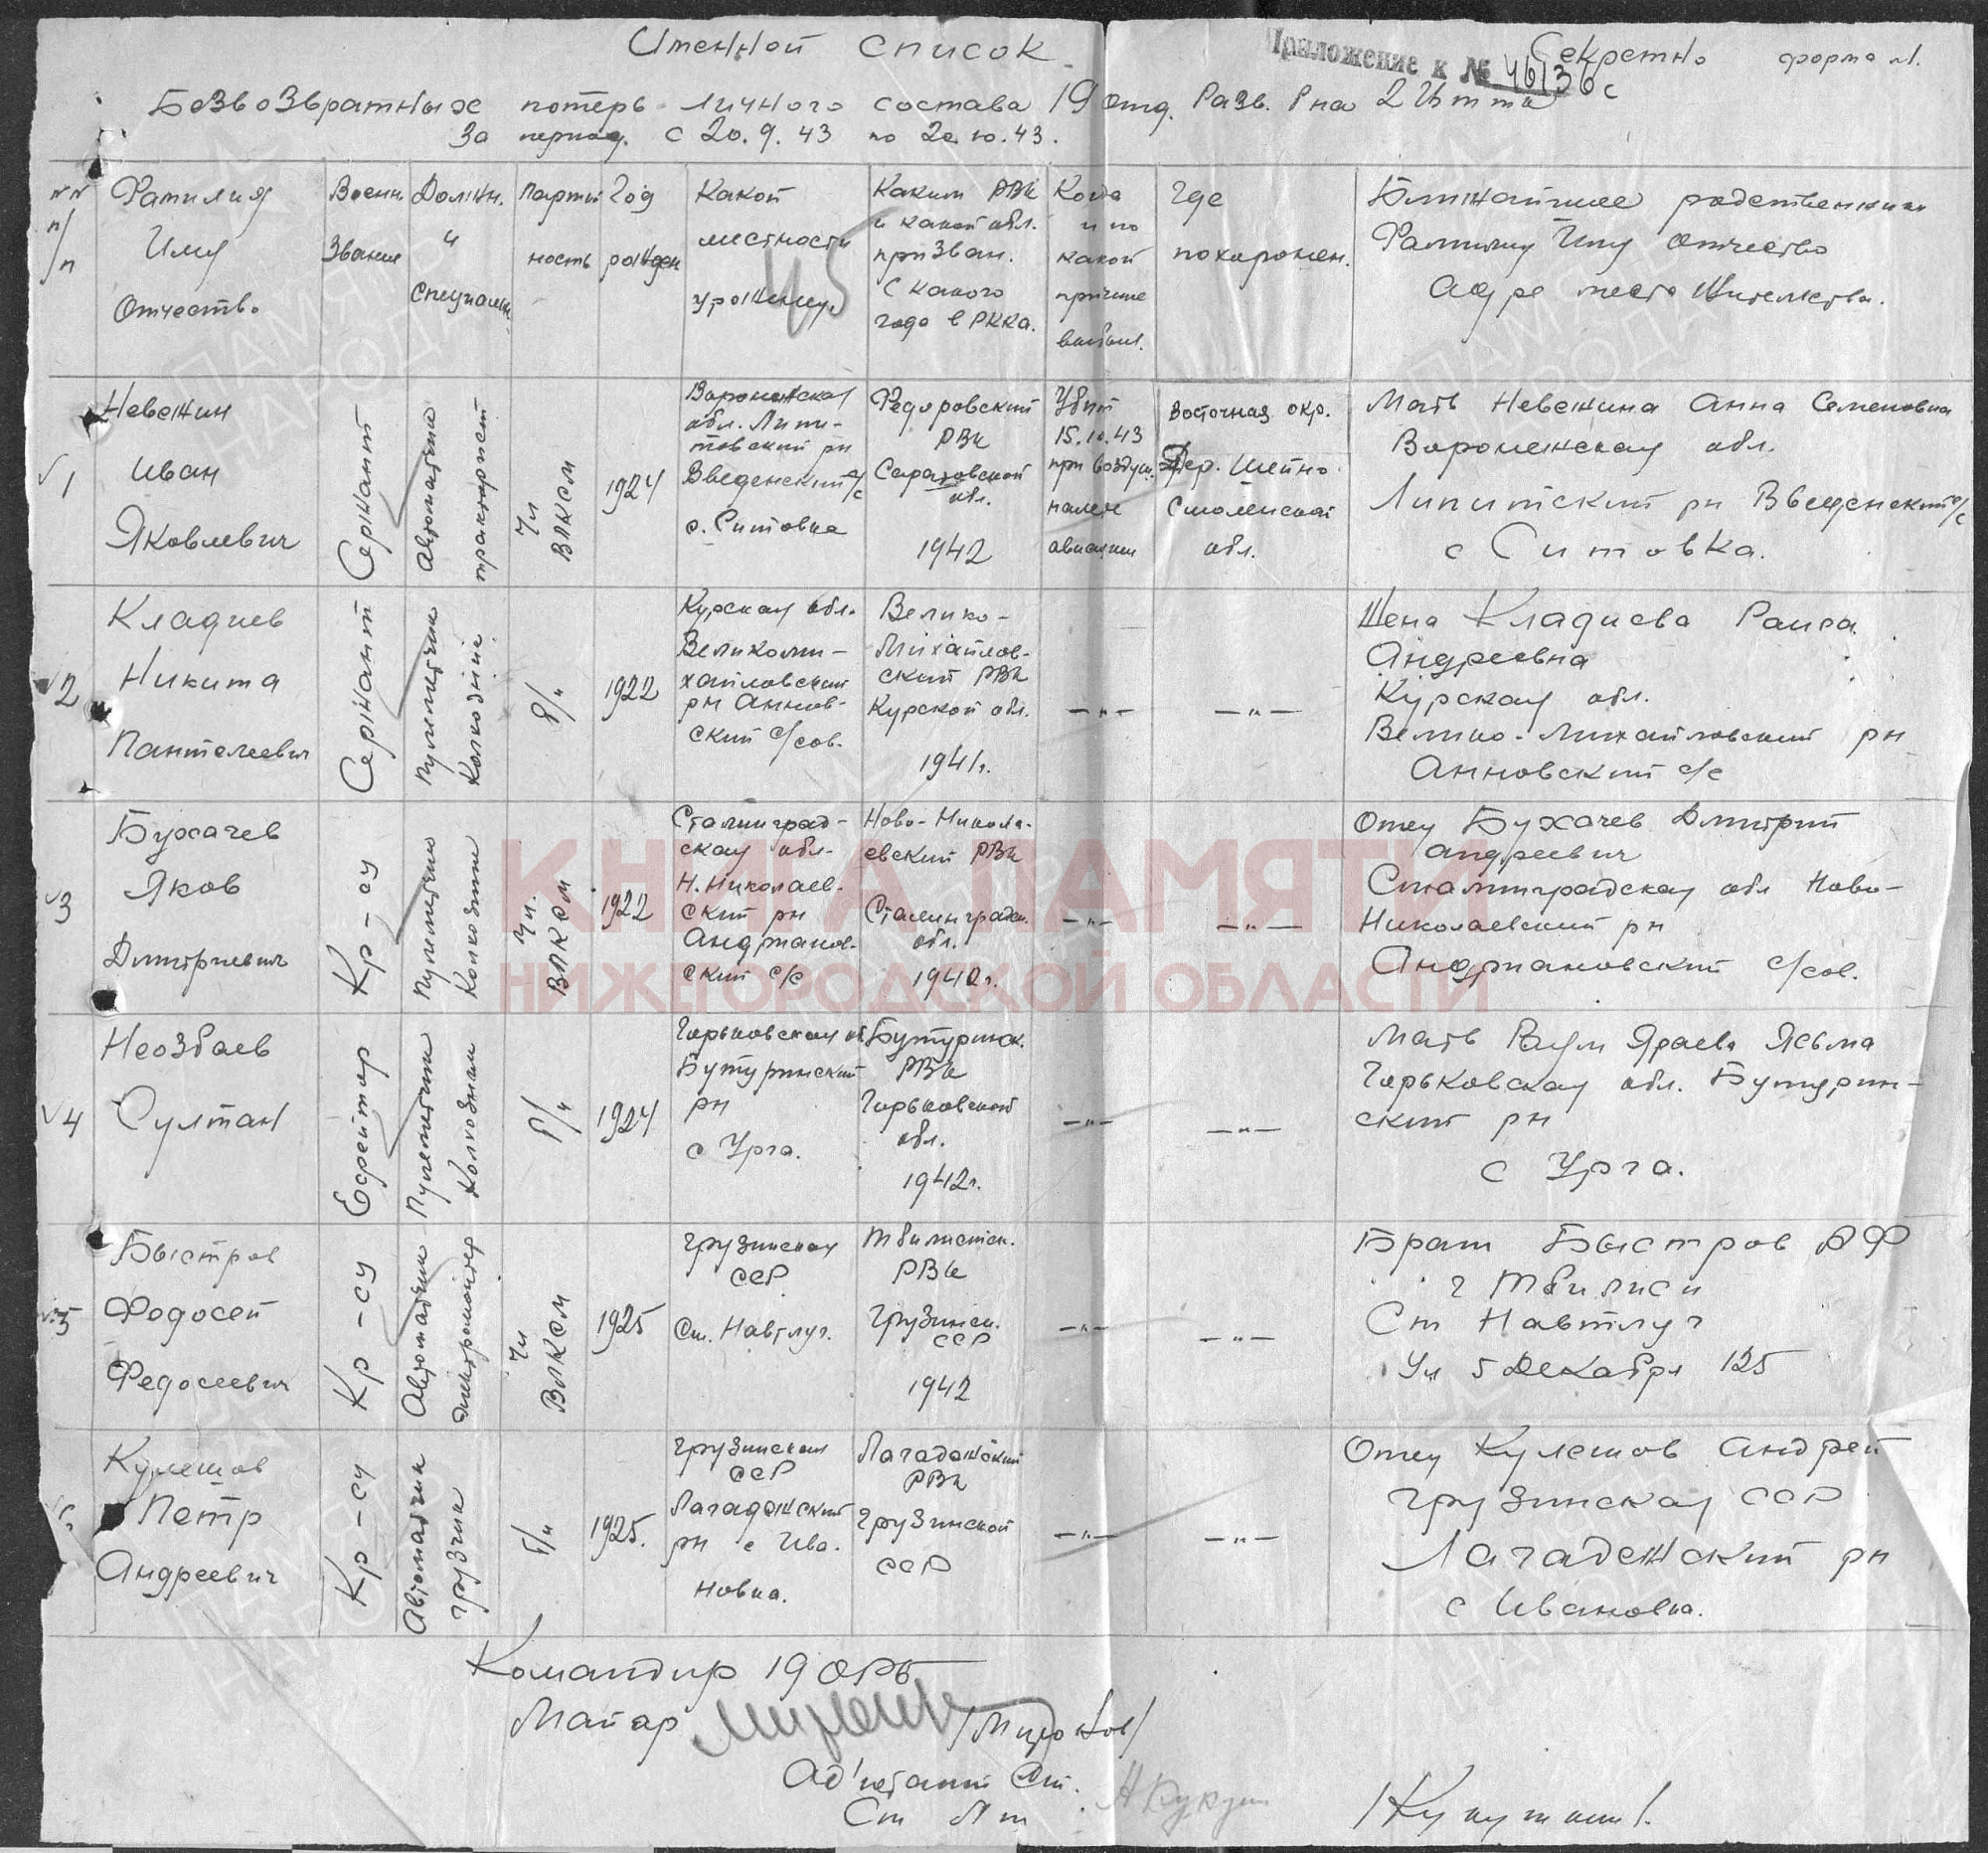 Именной список
Приложение к № 46136с
Секретно форма №1.
Безвозвратных потерь личного состава 19 отд. Разв. Б-на
За период с 20.9.43 по 20.10.43.
№№ п/п
Фамилия Имя Отчество
Военн. Звание
Должн. и Специальн.
Партийность
Год рожден
Какой местности урожинец
Каким РВК и какой обл. призван. С какого года в РККА.
Когда и по какой причине выбыл.
Где похоронен.
Ближайшие родственники Фамилию Имя Отчество Адре место жительства.
45
1
Невежин
Иван
Яковлевич
Сержант
Автоматчик
тракторист
Чл ВЛКСМ
1924
Воронежская
обл. Липи-
товский рн
Введенский с/с
с. Ситовка
Федоровский
РВК
Саратовской
обл.
1942
Убит
15.10.43
при воздуш.
налете
авиации
Восточная окр.
Дер. Шейно
Смоленской
обл.
Мать Невежина Анна Семеновна
Воронежская обл.
Липитский рн Введенский с/с
с Ситовка.
2
Кладиев
Никита
Пантелеевич
Сержант
Пулеметчик
Колхозник
Б/п
1922
Курская обл.
Великоми-
хайловский
рн Аннов-
ский с/сов.
Велико-
Михайлов-
ский РВК
Курской обл.
1941г.
—"—
—"—
Жена Кладиева Раиса
Андреевна
Курская обл.
Велико-Михайловский рн
Анновский с/с
3
Бухачев
Яков
Дмитриевич
Кр-ец
Пулеметчик
Колхозник
Чл. ВЛКСМ
1922
Сталинград-
ская обл.
Н.Николаев-
ский рн
Андрианов-
ский с/с
Ново-Никола-
евский РВК
Сталинградск.
обл.
1942г.
—"—
—"—
Отец Бухачев Дмитрий
Андреевич
Сталинградская обл Ново-
Николаевский рн
Андриановский с/сов.
КНИГА ПАМЯТИ
НИЖЕГОРОДСКОЙ ОБЛАСТИ
4
Неозбаев
Султан
Ефрейтор
Пулеметчик
Колхозник
Б/п
1924
Горьковская об
Бутуринский
рн
с Урга.
Бутуринск.
РВК
Горьковской
обл.
1942г.
—"—
—"—
Мать Ясьма
Горьковская обл. Бутурин-
ский рн
с Урга.
5
Быстров
Федосей
Федосеевич
Кр-ец
Автоматчик
электромонтер
Чл ВЛКСМ
1925
Грузинская
ССР
Ст. Навтлуг.
Тбилисск.
РВК
Грузинск.
ССР
1942
—"—
—"—
Брат Быстров
г Тбилиси
Ст Навтлуг
Ул 5 Декабря 125
Кулешов
Петр
Андреевич
Кр-ец
Автоматчик
грузчик
Б/п
1925.
Грузинская
ССР
Лагадежский
рн с Ива-
новка.
Лагадежский
РВК
Грузинской
ССР
—"—
—"—
Отец Кулешов Андрей
Грузинская ССР
Лагадежский рн
с Ивановка.
Командир 19 ОРБ
Майор
Ад'ютант Ст.
Ст Л-т